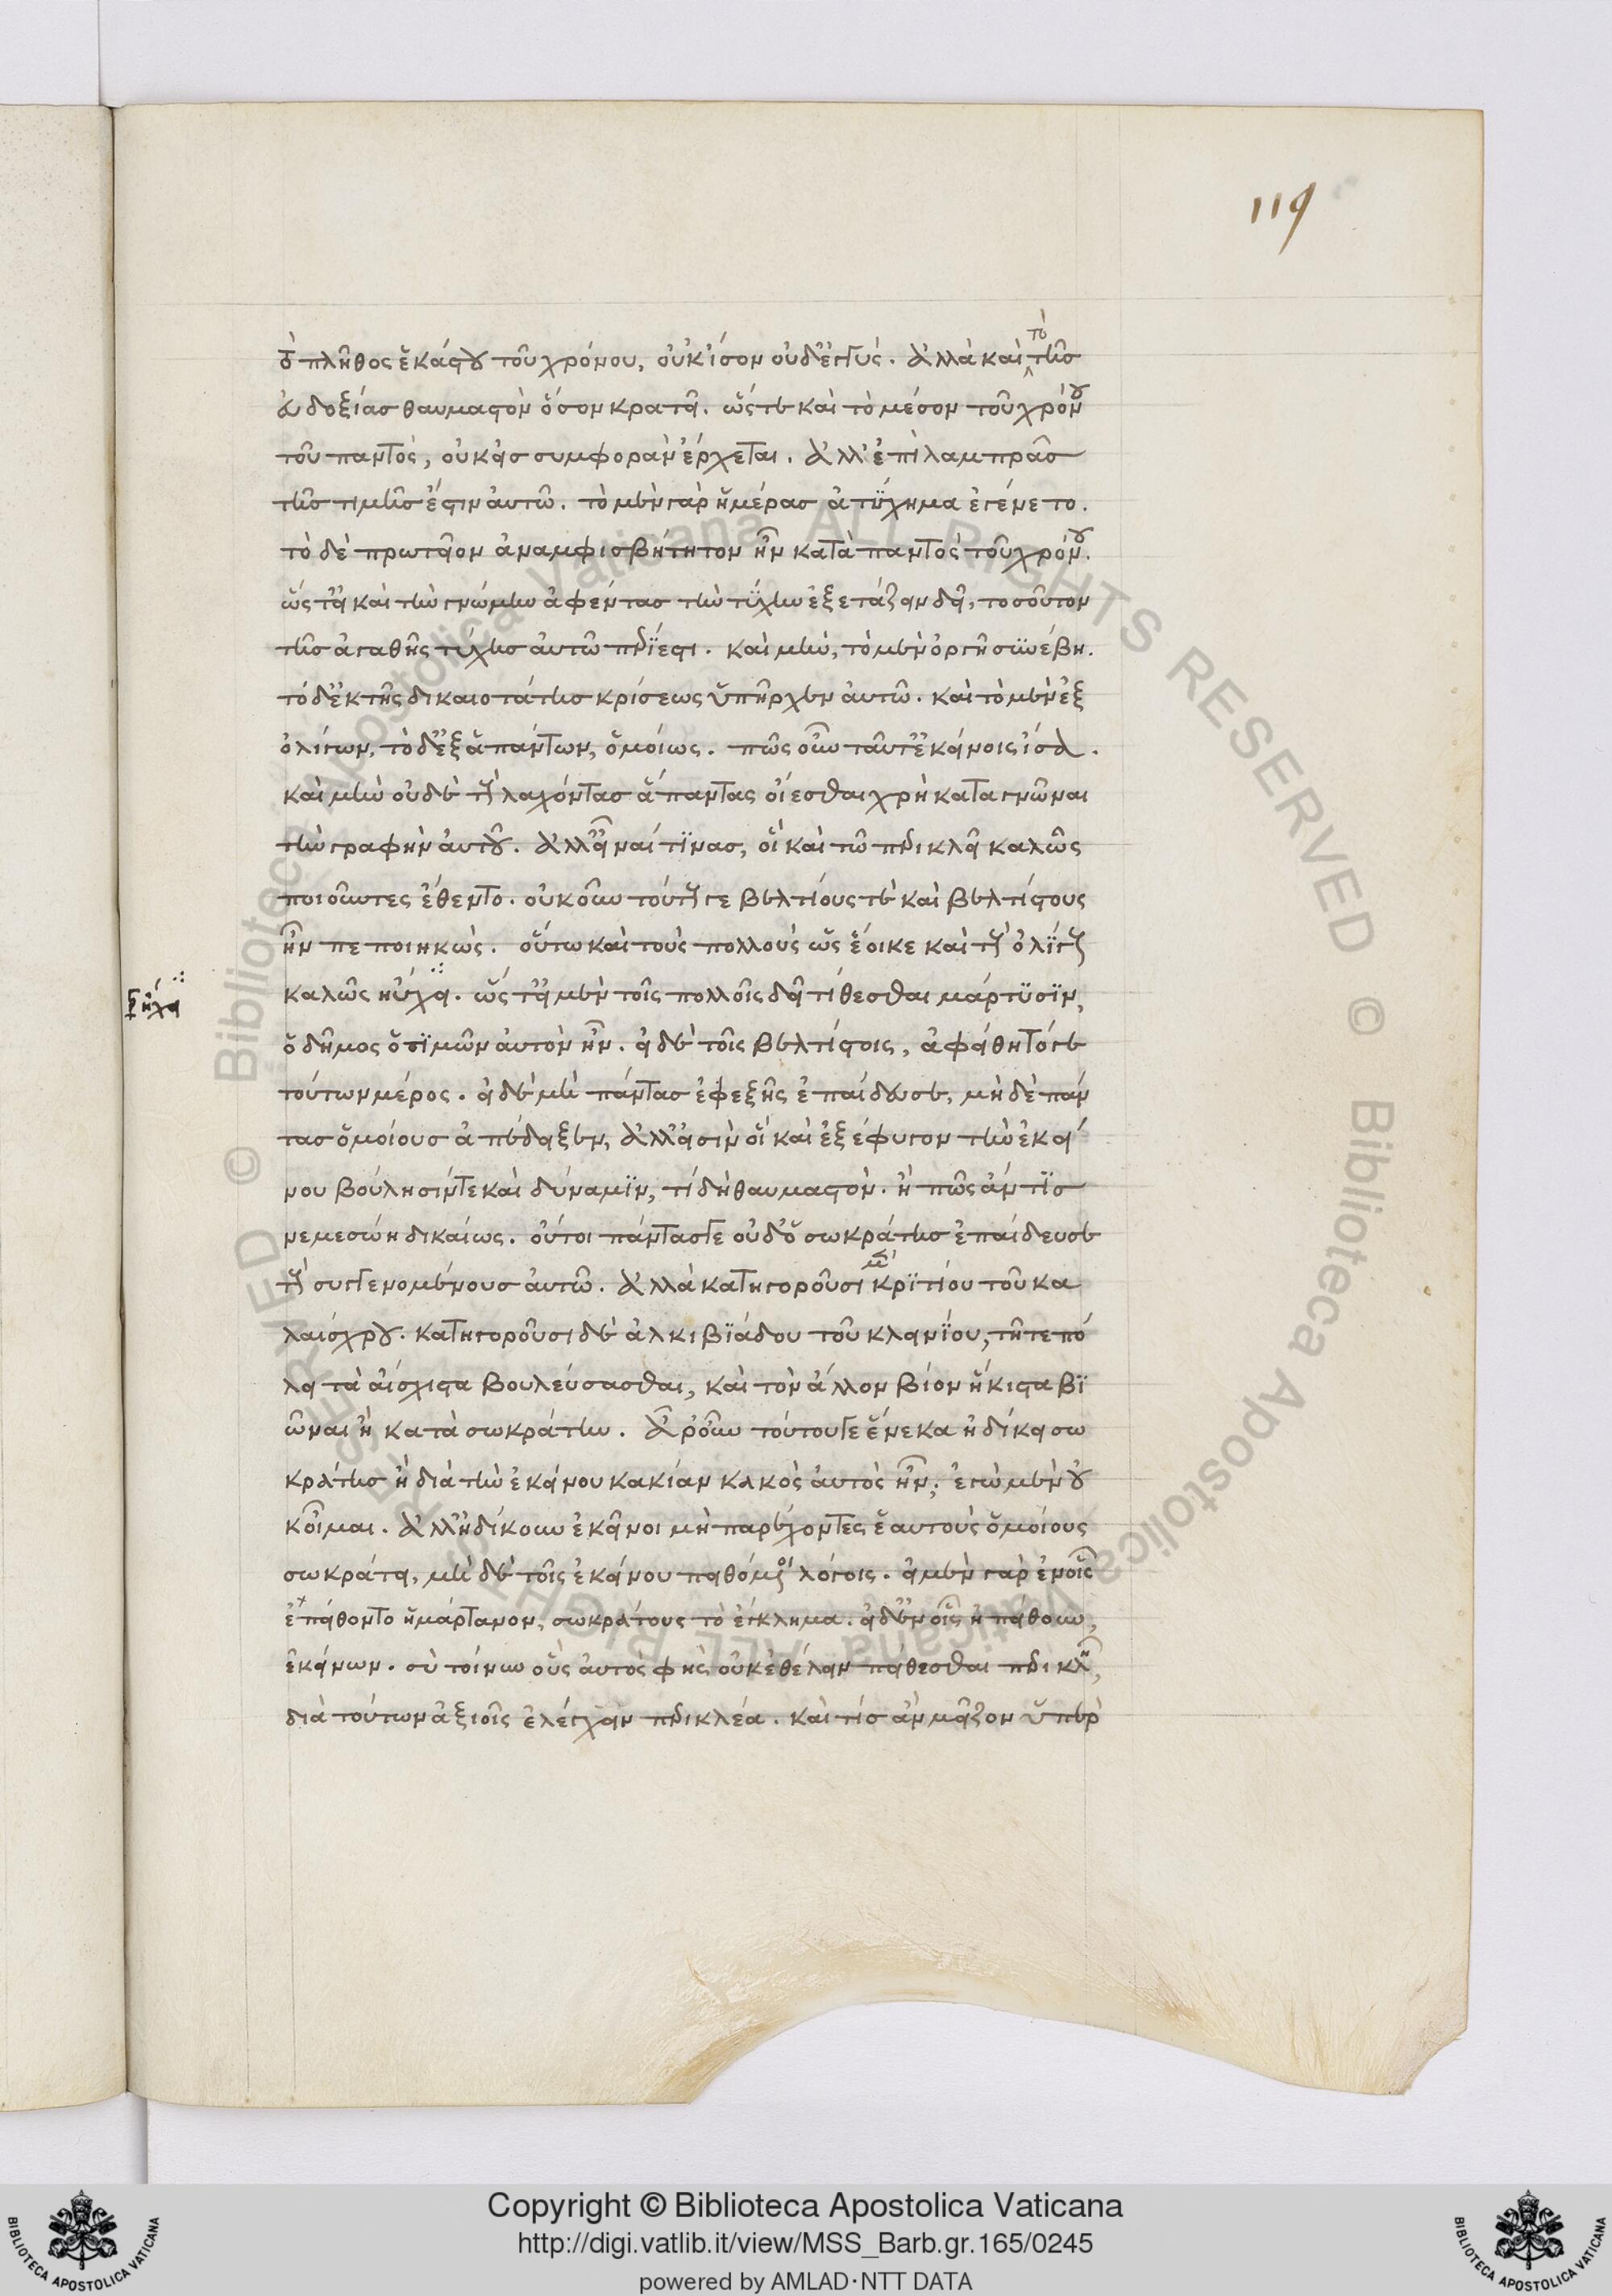 119
τὸ
ὸ πλῆθος ἑκάστου τοῦ χρόνου, οὐκ ἴσον οὐδ' ἐγγύς. ἀλλὰ καὶ τῆσ
εὐδοξίασ θαυμαστὸν ὅσον κρατεῖ. ὥστε καὶ τὸ μέσον τοῦ χρόνου
τοῦ παντὸς, οὐκ εἰσ συμφορὰν ἔρχεται. ἀλλ' ἐπὶ λαμπρᾶσ
τῆσ τιμῆσ ἔστιν αὐτῶ. τὸ μὲν γὰρ ἡμέρασ ἀτύχημα ἐγένετο.
τὸ δὲ πρωτεῖον ἀναμφισβήτητον ἦν κατὰ παντὸς τοῦ χρόνου.
ὥστ' εἰ καὶ τὴν γνώμην ἀφέντασ τὴν τύχην ἐξετάζειν δεῖ, τοσοῦτον
τῆσ ἀγαθῆς τύχησ αὐτῶ περίεστι. καὶ μὴν, τὸ μὲν ὀργῆ συνέβη.
τὸ δ' ἐκ τῆς δικαιοτάτησ κρίσεως ὑπῆρχεν αὐτῶ. καὶ τὸ μὲν ἐξ
ὀλίγων, τὸ δ' ἐξ ἁπάντων, ὁμοίως. πῶς οὖν ταῦτ' ἐκείνοις ἴσα.
καὶ μὴν οὐδὲ τοὺς λαχόντασ ἅπαντας οἴεσθαι χρὴ καταγνῶναι
τὴν γραφὴν αὐτοῦ. ἀλλ' εἶναί τινασ, οἳ καὶ τῶ περικλεῖ καλῶς
ποιοῦντες ἔθεντο. οὐκοῦν τούτους γε βελτίους τὲ καὶ βελτίστους
ἦν πεποιηκὼς. οὕτω καὶ τοὺς πολλοὺς ὡς ἔοικε καὶ τοὺς ὀλίγους
καλῶς ηὔχει. ὥστ' εἰ μὲν τοῖς πολλοῖς δεῖ τίθεσθαι μάρτυσϊν,
ὁ δῆμος ὁ τιμῶν αὐτὸν ἦν. εἰ δὲ τοῖς βελτίστοις, ἀφείθη τό γε
τούτων μέρος. εἰ δὲ μὴ πάντασ ἐφεξῆς ἐπαίδευσε, μὴ δὲ πάν
τασ ὁμοίουσ ἀπέδειξεν, ἀλλ' εἰσὶν οἳ καὶ ἐξέφυγον τὴν ἐκεί
νου βούλησίν τε καὶ δύναμϊν, τί δὴ θαυμαστὸν. ἢ πῶς ἄν τϊσ
νεμεσώη δικαίως. οὔτοι πάντασ γε οὐδ' ὁ σωκράτησ ἐπαίδευσε
τοὺς συγγενομένουσ αὐτῶ. ἀλλὰ κατηγοροῦσι μὲν κρϊτίου τοῦ κα
λαίσχρου. κατηγοροῦσι δὲ ἀλκιβϊάδου τοῦ κλεινίου, τῆ τε πό
λει τὰ αἴσχιστα βουλεύσασθαι, καὶ τὸν ἄλλον βίον ἥκιστα βϊ
ῶναι ἢ κατὰ σωκράτην. ἆρ' οὖν τούτου γε ἕνεκα ἠδίκει σω
κράτησ ἢ διὰ τὴν ἐκείνου κακίαν κακὸς αὐτὸς ἦν; ἐγὼ μὲν οὐ
κ οἶμαι. ἀλλ' ἠδίκουν ἐκεῖνοι μὴ παρέχοντες ἑαυτοὺς ὁμοίους
σωκράτει, μὴ δὲ τοῖς ἐκείνου πειθόμενοι λόγοις. εἰ μὲν γὰρ ἐν οἷς
ἐπείθοντο ἡμάρτανον, σωκράτους τὸ ἔγκλημα. εἰ δ' ἐν οἷς ἠπείθουν,
ἐκείνων. σὺ τοίνυν οὓς αὐτὸς φὴς οὐκ ἐθέλειν πείθεσθαι περικλεῖ,
διὰ τούτων ἀξιοῖς ἐλέγχειν περικλέα. καὶ τίσ ἂν μεῖζον ὑπὲρ
Copyright © Biblioteca Apostolica Vaticana
http://digi.vatlib.it/view/MSS_Barb.gr.165/0245
powered by AMLAD·NTT DATA
BIBLIOTECA APOSTOLICA VATICANA
BIBLIOTECA APOSTOLICA VATICANA